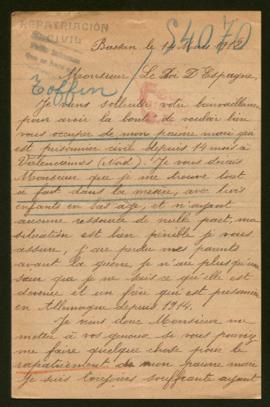 REPATRIACIÓN
CIVIL
S4070
Bassin le 14 Mars 191
Toffin
Monsieur, Le Roi D'Espagne,
Je viens solliciter votre bienveillance
pour avoir la bonté de vouloir bien
vous occuper de mon pauvre mari qui
est prisonnier civil depuis 14 mois à
Valenciennes (Nord). Je vous dirais
Monsieur que je me trouve tout
à fait dans la misère, avec trois
enfants en bas âge, et n'ayant
aucune ressource de nulle part, ma
situation est bien pénible je vous
assure, j'ai perdu mes parents
avant la guerre, je n'ai plus qu'une
sœur que je ne sais ce qu'elle est
devenue et un frère qui est prisonnier
en Allemagne depuis 1914.
Je viens donc Monsieur me
mettre à vos genoux, si vous pouvez
me faire quelque chose pour le
rapatriement de mon pauvre mari
Je suis toujours souffrante ayant